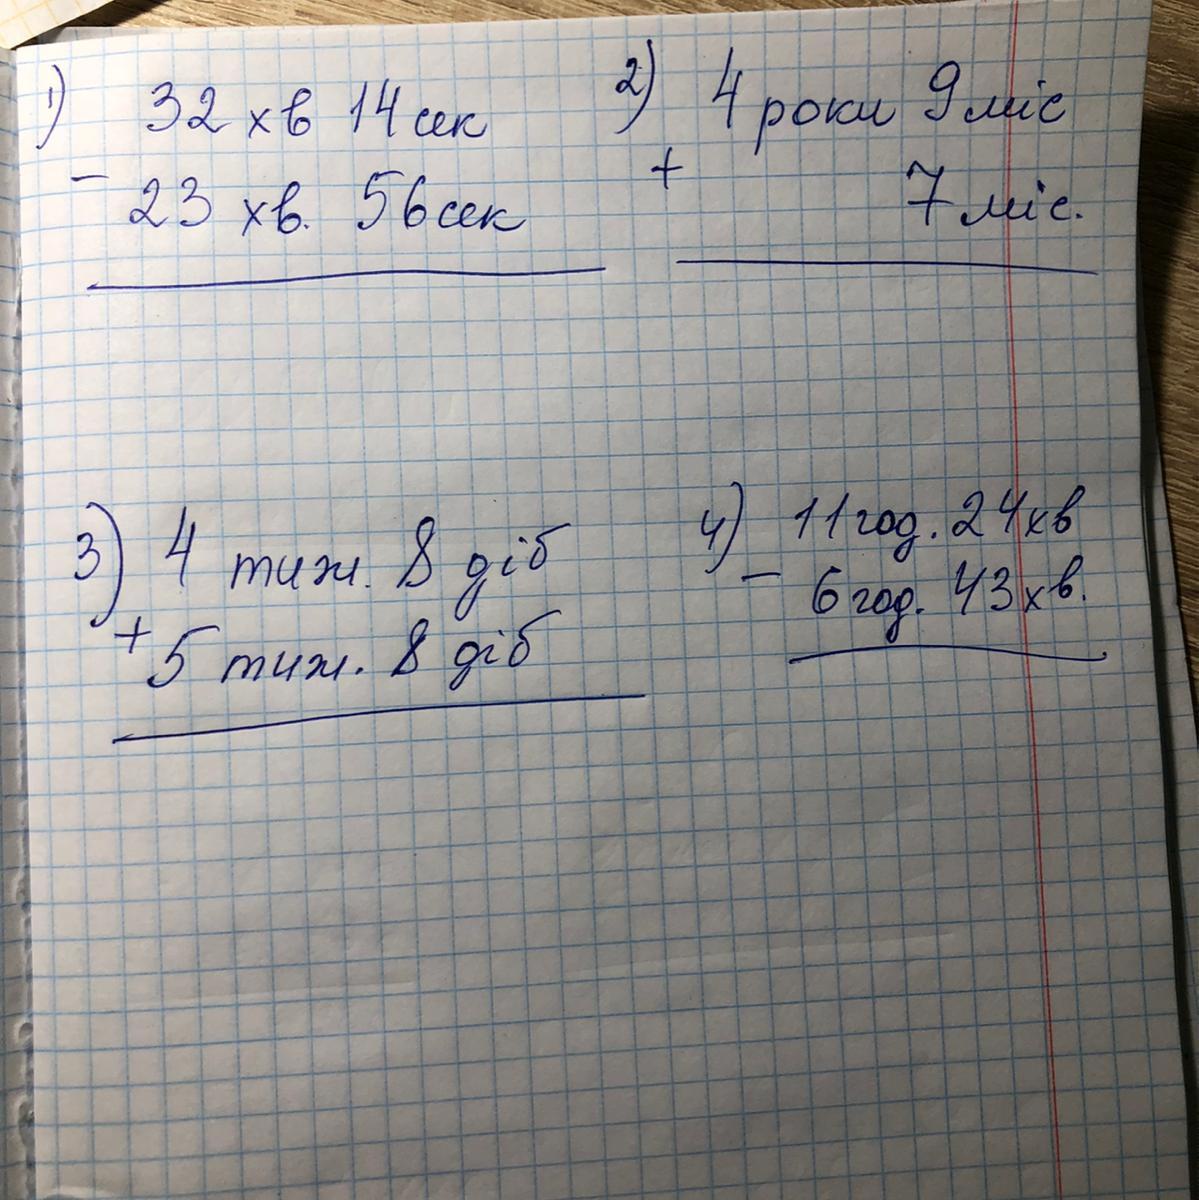 1) 32 хв 14 сек
- 23 хв. 56 сек
2) 4 роки 9 міс
+ 7 міс.
3) 4 тиж. 8 діб
+ 5 тиж. 8 діб
4) 11 год. 24 хв
- 6 год. 43 хв.